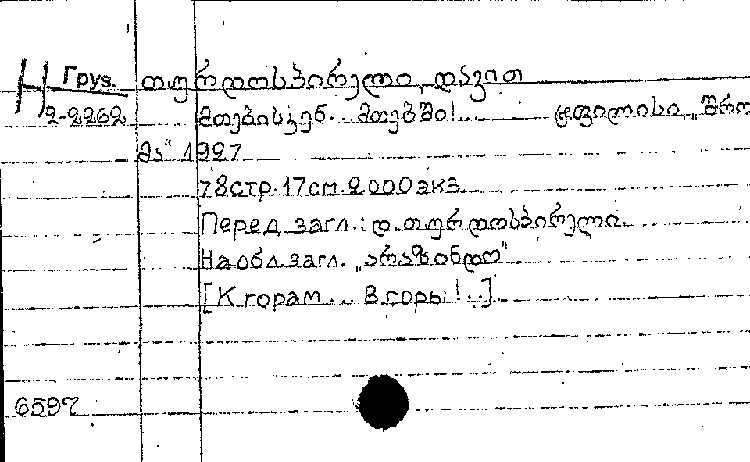 Н Груз. თურდოსპირელი, დავით
2-2262 მთებისკენ... მთებში!... ტფილისი, „შრო
მა“ 1927
78стр. 17см. 2000экз.
Перед загл.: დ. თურდოსპირელი.
На обл. загл. „არაზინდო“
[К горам... В горы!...]
6597